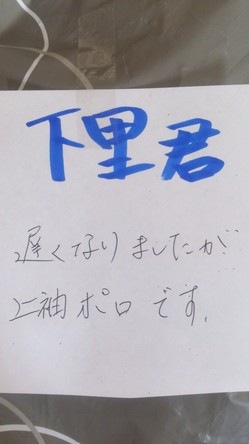 下里君
遅くなりましたが
上袖ポロです.